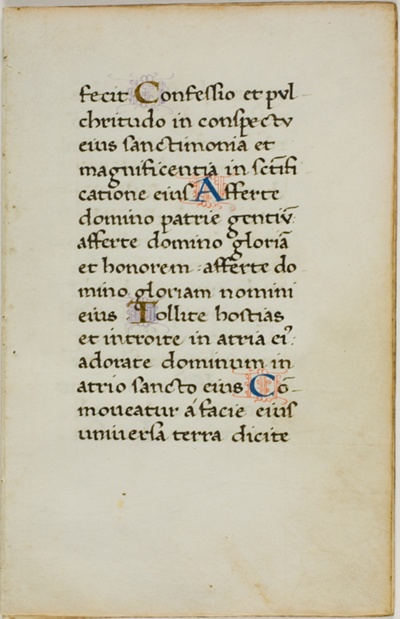 fecit Confessio et pul
chritudo in conspectu
eius sanctimonia et
magnificentia in sc̄tifi
catione eius Afferte
domino patrie gentiū
afferte domino gloriā
et honorem : afferte do
mino gloriam nomini
eius Tollite hostias
et introite in atria ei᾽:
adorate dominum in
atrio sancto eius Cō-
moueatur á facie eius
uniuersa terra dicite